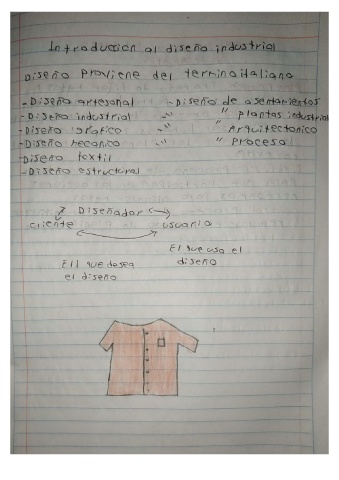 Introduccion al diseño industrial
Diseño Proviene del termino italiano
-Diseño artesanal -Diseño de asentamientos
-Diseño industrial -" " plantas industrial
-Diseño grafico -" " Arquitectonico
-Diseño mecanico -" " Proceso
-Diseño textil
-Diseño estructural
Diseñador
cliente usuario
El que usa el
diseño
El que desea
el diseño